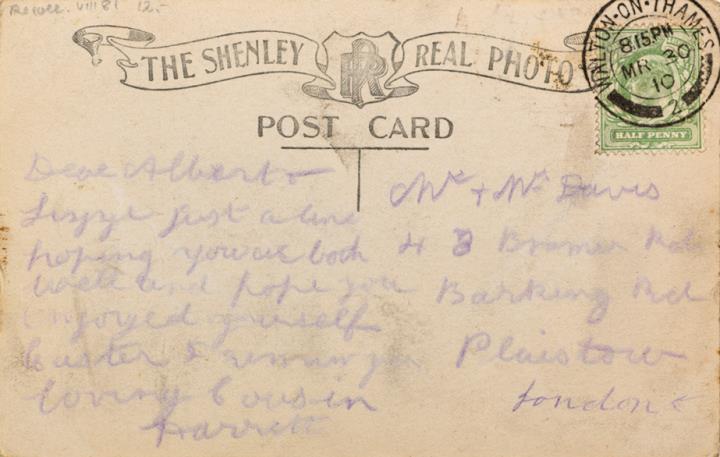 12.-
THE SHENLEY REAL PHOTO
POST CARD
WALTON-ON-THAMES
8.15PM
MR 30
10
2
HALF PENNY
Dear Albert +
just a line
hoping you are both
well and hope you
enjoyed yourself
Easter I remain your
loving Cousin
Harrett
Mr + Mrs Davis
43 Rd
Barking Rd
Plaistow
London E